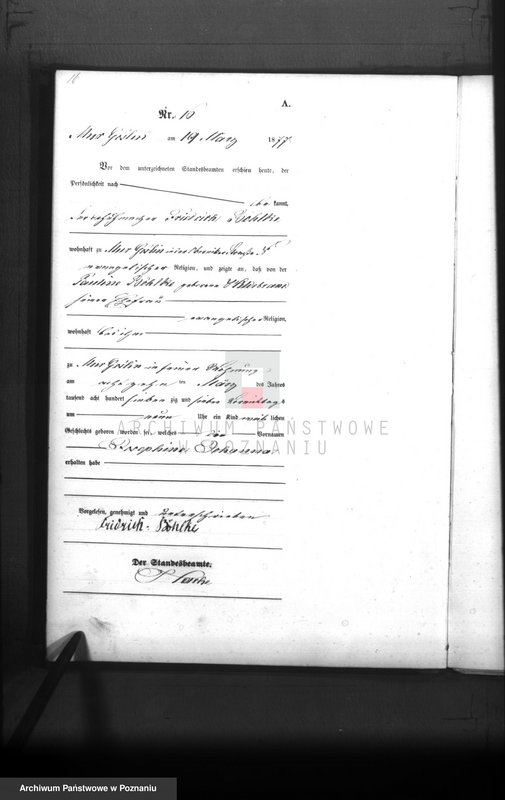 16
A.
Nr. 10
Mur Goslin am 19 März 1877.
Vor dem unterzeichneten Standesbeamten erschien heute, der
Persönlichkeit nach
be kannt,
Friedrich Böhlke
wohnhaft zu Mur Goslin
evangelischer Religion, und zeigte an, daß von der
Pauline Böhlke geborene
seiner Ehefrau
evangelischer Religion,
wohnhaft bei ihm
zu Mur Goslin in seiner Wohnung
am März des Jahres
tausend acht hundert sieben zig und sieben Vormittags
um neun Uhr ein Kind weib lichen
Geschlechts geboren worden sei, welches die Vornamen
Josephine Johanna
erhalten habe
Vorgelesen, genehmigt und unterschrieben
Fridrich Böhlke
Der Standesbeamte.
ARCHIWUM PAŃSTWOWE
W POZNANIU
Archiwum Państwowe w Poznaniu